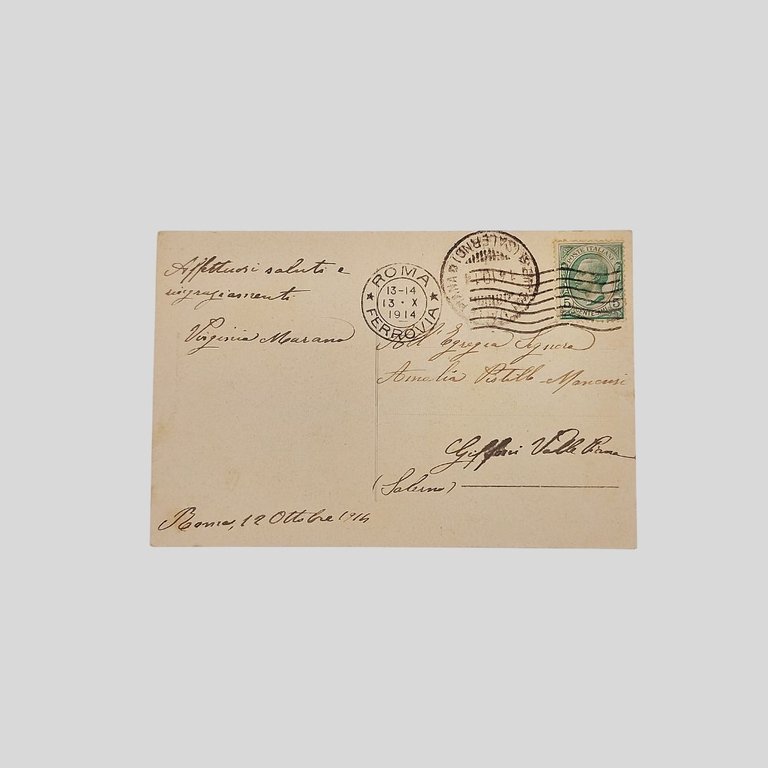 Affettuosi saluti e
ringraziamenti
Virginia Marano
Roma, 12 Ottobre 1914
ROMA
13-14
13 · X
1914
FERROVIA
(SALERNO)
POSTE ITALIANE
5 5
All' Egregia Signora
Amalia Pistilli Mancusi
Giffoni Valle Piana
(Salerno)